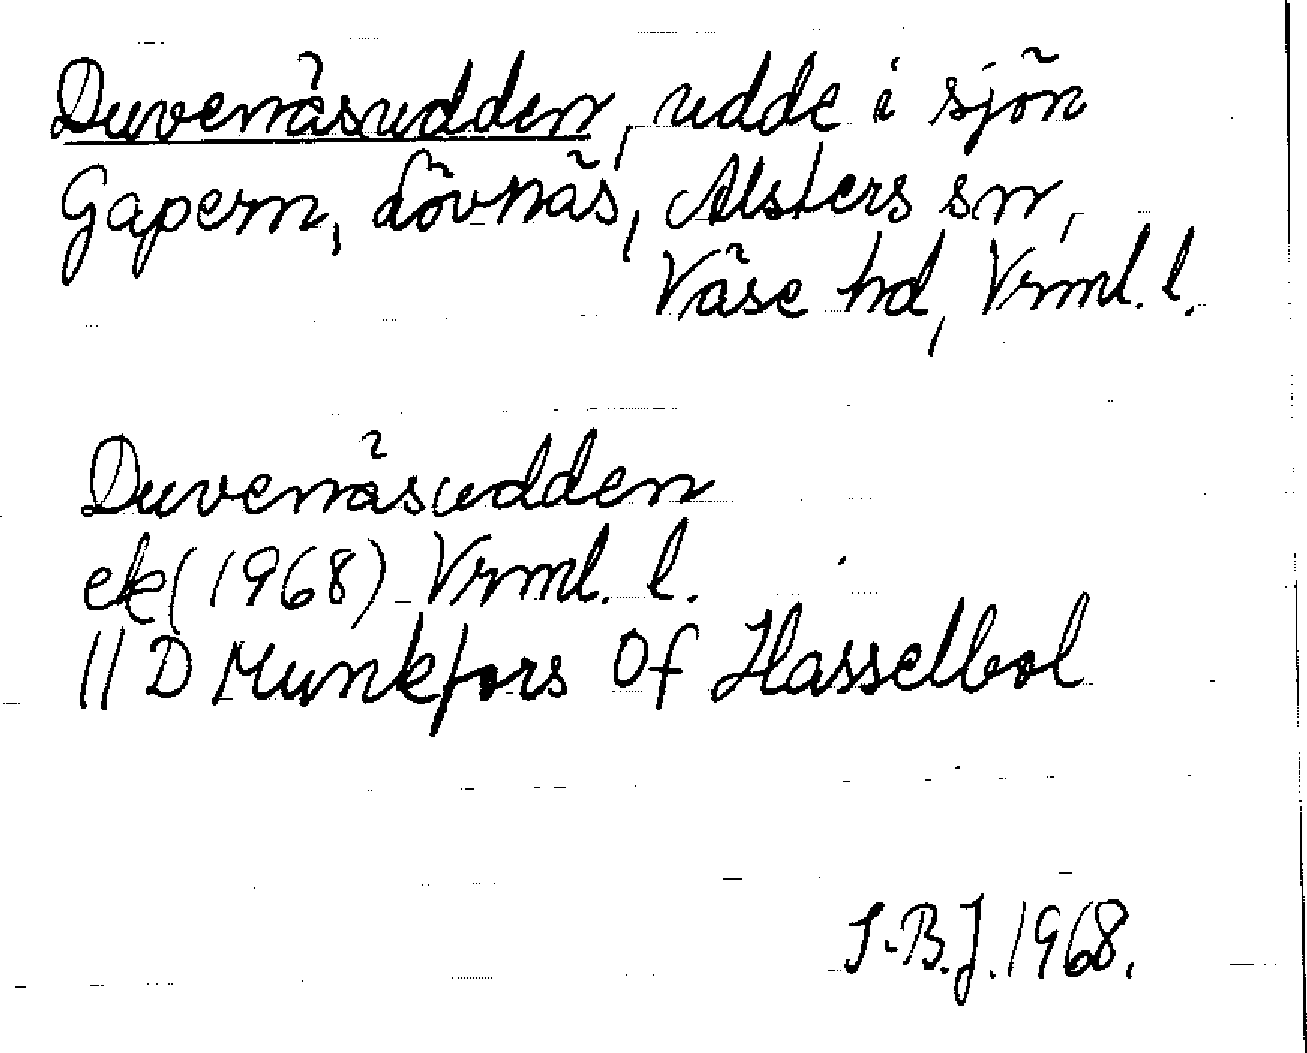 Duvenäsudden, udde i sjön
Gapern, Lövnäs, Alsters sn,
Väse hd, Vrml. l.
Duvenäsudden
ek (1968) Vrml. l.
11 D Munkfors 0f Hasselbol
S.B.J. 1968.